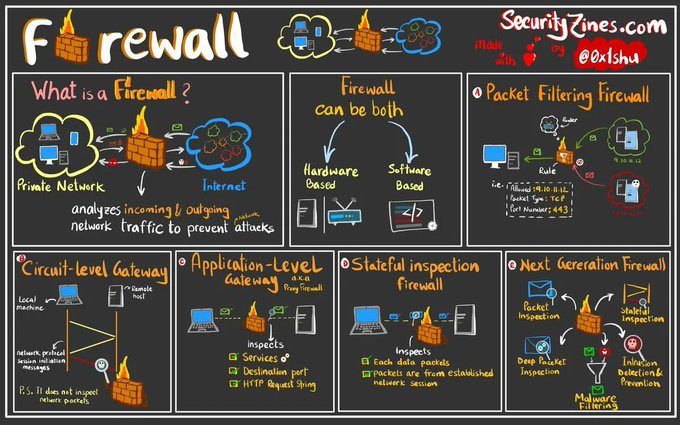 Firewall
SecurityZines.com
made with
by
@0x1shu
What is a Firewall?
Private Network
Internet
analyzes incoming & outgoing
network traffic to prevent network attacks
Firewall
can be both
Hardware
Based
Software
Based
A Packet Filtering Firewall
Router
Rule
9.10.11.12
i.e.
Allowed: 9.10.11.12
Packet Type: TCP
Port Number: 443
B Circuit-level Gateway
Local
machine
Remote
host
network protocol
session initiation
messages
P.S. It does not inspect
network packets
C Application-Level
Gateway a.k.a
Proxy Firewall
inspects
Services
Destination port
HTTP Request String
D Stateful inspection
firewall
Inspects
Each data packets
Packets are from established
network session
E Next Gereration Firewall
Packet
Inspection
Stateful
Inspection
Deep Packet
Inspection
Intrusion
Detection &
Prevention
Malware
Filtering